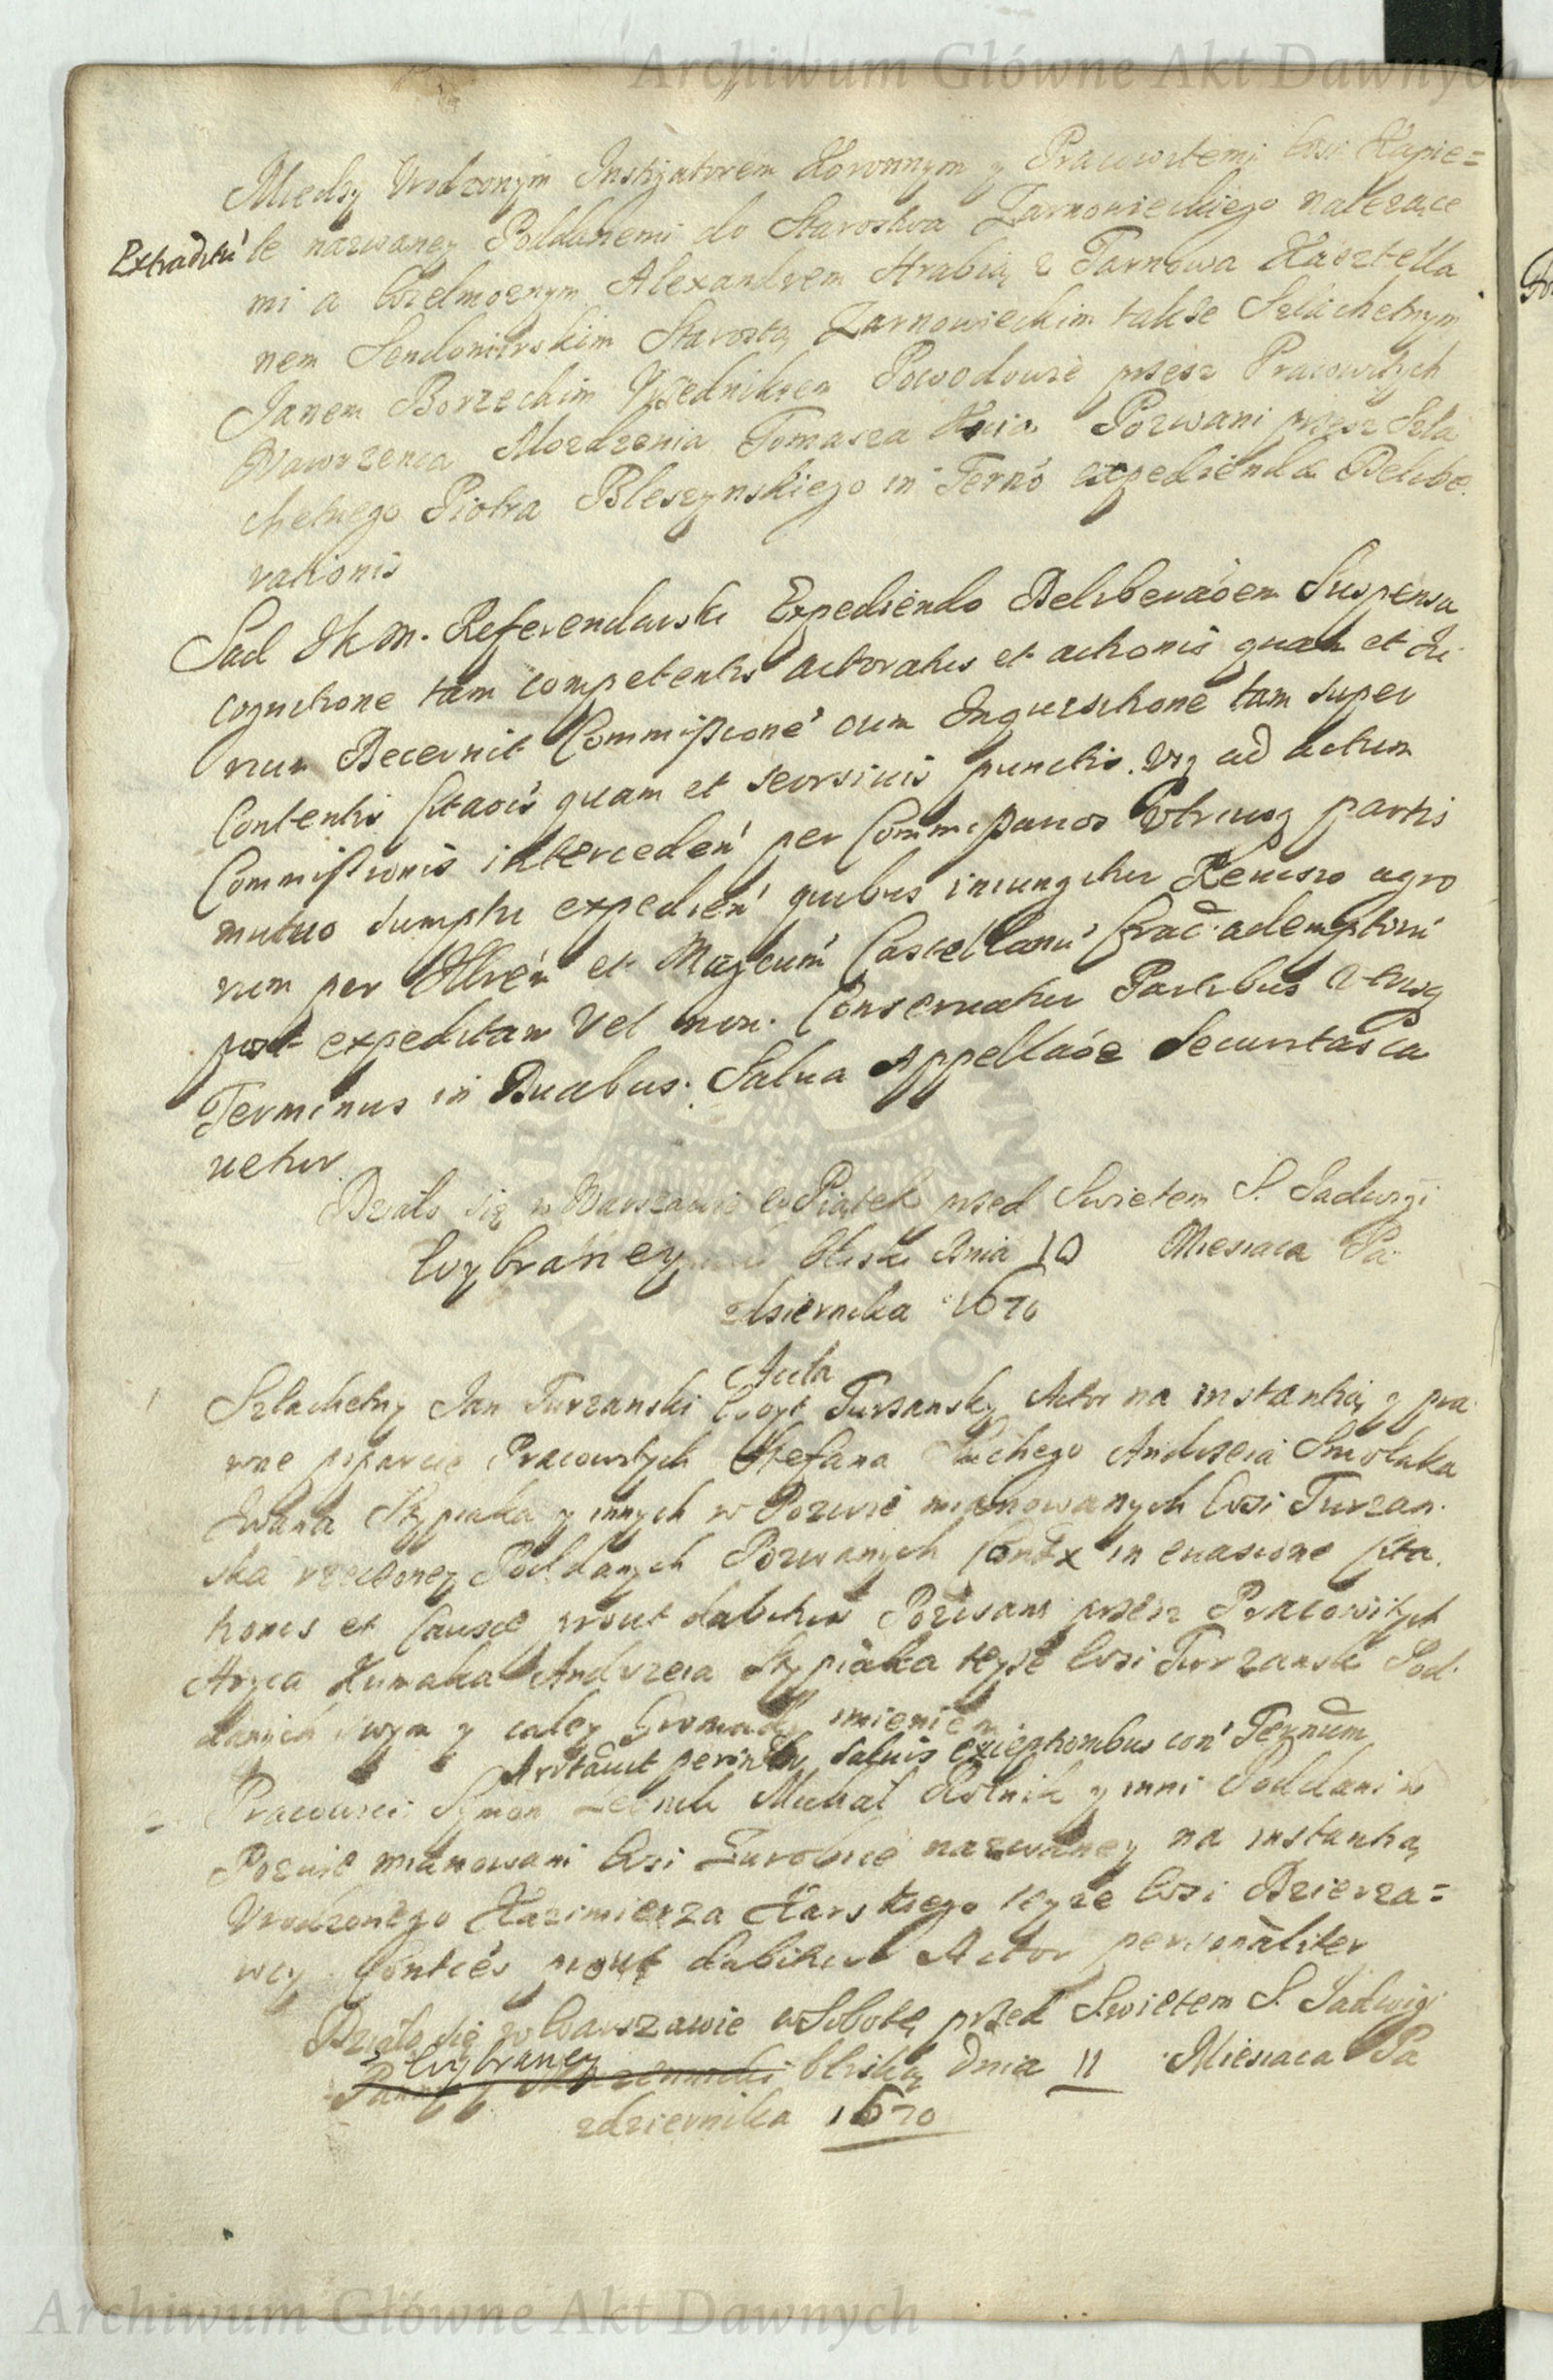 Archiwum Główne Akt Dawnych
Miedzy Urodzonym Instigatorem Koronnym y Pracowitemi Wsi Kąpie=
Extraditū
le nazwaney Poddanemi do Starostwa Zarnowieckiego nalezące
mi a Wielmoznym Alexandrem Hrabią z Tarnowa Kasztella
nem Sendomirskim Starostą Zarnowieckim takze Szlachetnym
Janem Borzeckim Vrzednikiem Powodowie przez Pracowitych
Wawrzenca Mozdzenia Tomasza Pozwani przez Szla
chetnego Piotra Bleszynskiego in Termō expediendæ Delibe
rationis
Sąd JK M. Referendarski Expediendo Deliberaōem Suspensa
cognitione tam competentis actoratus et actionis quam et Ju
rium Decernit Commissionē cum Inquisitione tam super
Contentis Citaōis quam et seorsiuis punctis Vsq ad actum
Commissionis interceden̄ per Commissarios Vtriusq partis
mutuo sumptu expedien̄ quibus iniungitur Reuisio agro
rum per Illrēm et Magcum̄ Castellanū Crac. ademptorū
post expeditam Vel non. Conseruatur Partibus Vtrisq
Terminus in Duabus. Salua Appellaōe Securitas Ca
uetur
Działo się w Warszawie w Piątek przed Swietem S. Jadwigi
Wybraney bliski Dnia 10 Miesiaca Pa
zdziernika 1670
Acta
Szlachetny Jan Turzanski Woyt Turzansky Actor na instantią y pra
wne poparcie Pracowitych Stefana Suchego Andrzeia Smolaka
Iwana Stypiaka y innych w Pozwie mianowanych Wsi Turzan
ska rzeczoney Poddanych Pozwanych Cont̄x in euasione Cita
tionis et Causæ prout dabitur Pozwani przez Pracowitych
Hryca Humaka Andrzeia Stypiaka teyze Wsi Turzanski Pod
danych swym y całey Gromady imieniem
Aritauit perintr̄ saluis exceptionibus con̄ Termūm
Pracowici Symon Michał Rolnik y inni Poddani w
Pozwie mianowani Wsi Zurobice nazwaney na instantią
Vrodzonego Kazimierza Karskiego teyze Wsi Dzierza=
wcy Contles prout dabitur Actor personaliter
Działo się w Warszawie w Sobotę przed Swietem S. Jadwigi
Wybraney
Panny y bliską Dnia 11 Miesiaca Pa
zdziernika 1670
Archiwum Główne Akt Dawnych